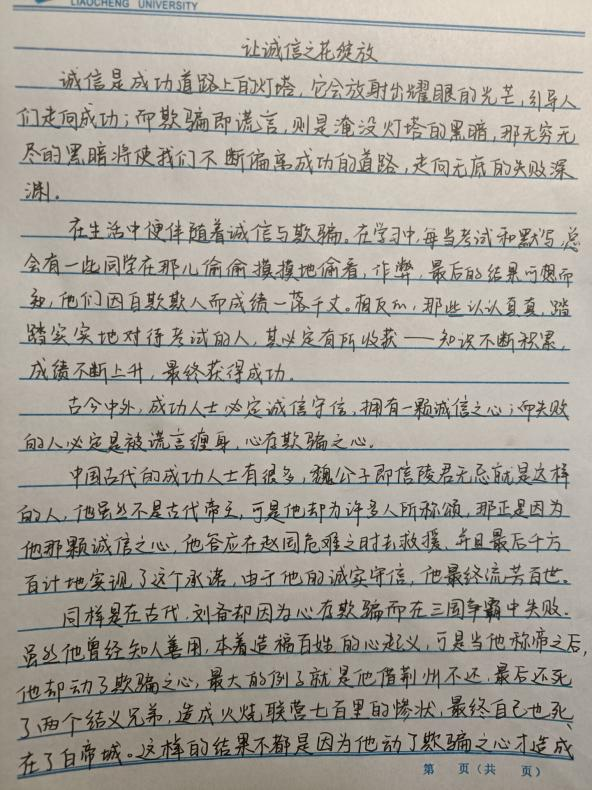 LIAOCHENG UNIVERSITY
让诚信之花绽放
诚信是成功道路上的灯塔，它会放射出耀眼的光芒，引导人
们走向成功；而欺骗即谎言，则是淹没灯塔的黑暗，那无穷无
尽的黑暗将使我们不断偏离成功的道路，走向无底的失败深
渊。
在生活中便伴随着诚信与欺骗。在学习中，每当考试和默写，总
会有一些同学在那儿偷偷摸摸地偷看，作弊，最后的结果可想而
知，他们因自欺欺人而成绩一落千丈。相反的，那些认认真真，踏
踏实实地对待考试的人，其必定有所收获——知识不断积累，
成绩不断上升，最终获得成功。
古今中外，成功人士必定诚信守信，拥有一颗诚信之心；而失败
的人必定是被谎言缠身，心存欺骗之心。
中国古代的成功人士有很多，魏公子即信陵君无忌就是这样
的人，他虽然不是古代帝王，可是他却为许多人所称颂，那正是因为
他那颗诚信之心，他答应在赵国危难之时去救援，并且最后千方
百计地实现了这个承诺，由于他的诚实守信，他最终流芳百世。
同样是在古代，刘备却因为心存欺骗而在三国争霸中失败．
虽然他曾经知人善用，本着造福百姓的心起义，可是当他称帝之后，
他却动了欺骗之心，最大的例子就是他借荆州不还，最后还死
了两个结义兄弟，造成火烧联营七百里的惨状，最终自己也死
在了白帝城。这样的结果不都是因为他动了欺骗之心才造成
第 页（共 页）